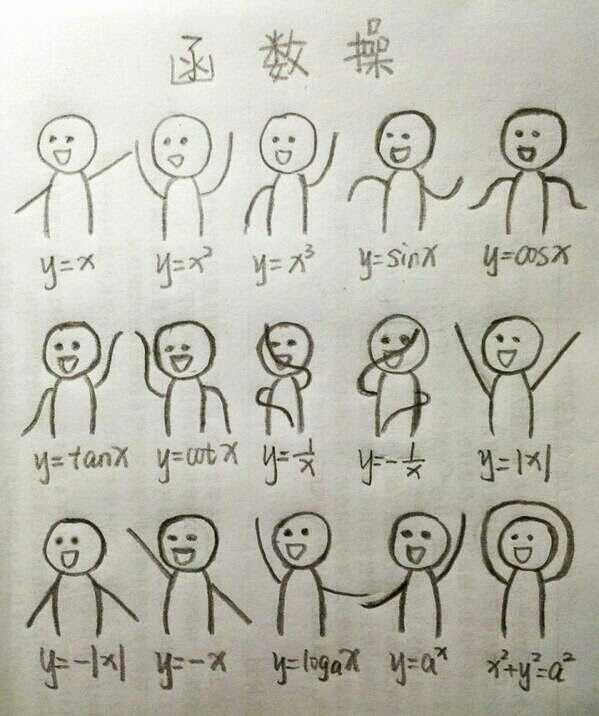 函数操
y=x y=x² y=x³ y=sinx y=cosx
y=tanx y=cotx y=1/x y=-1/x y=|x|
y=-|x| y=-x y=logₐx y=aˣ x²+y²=a²